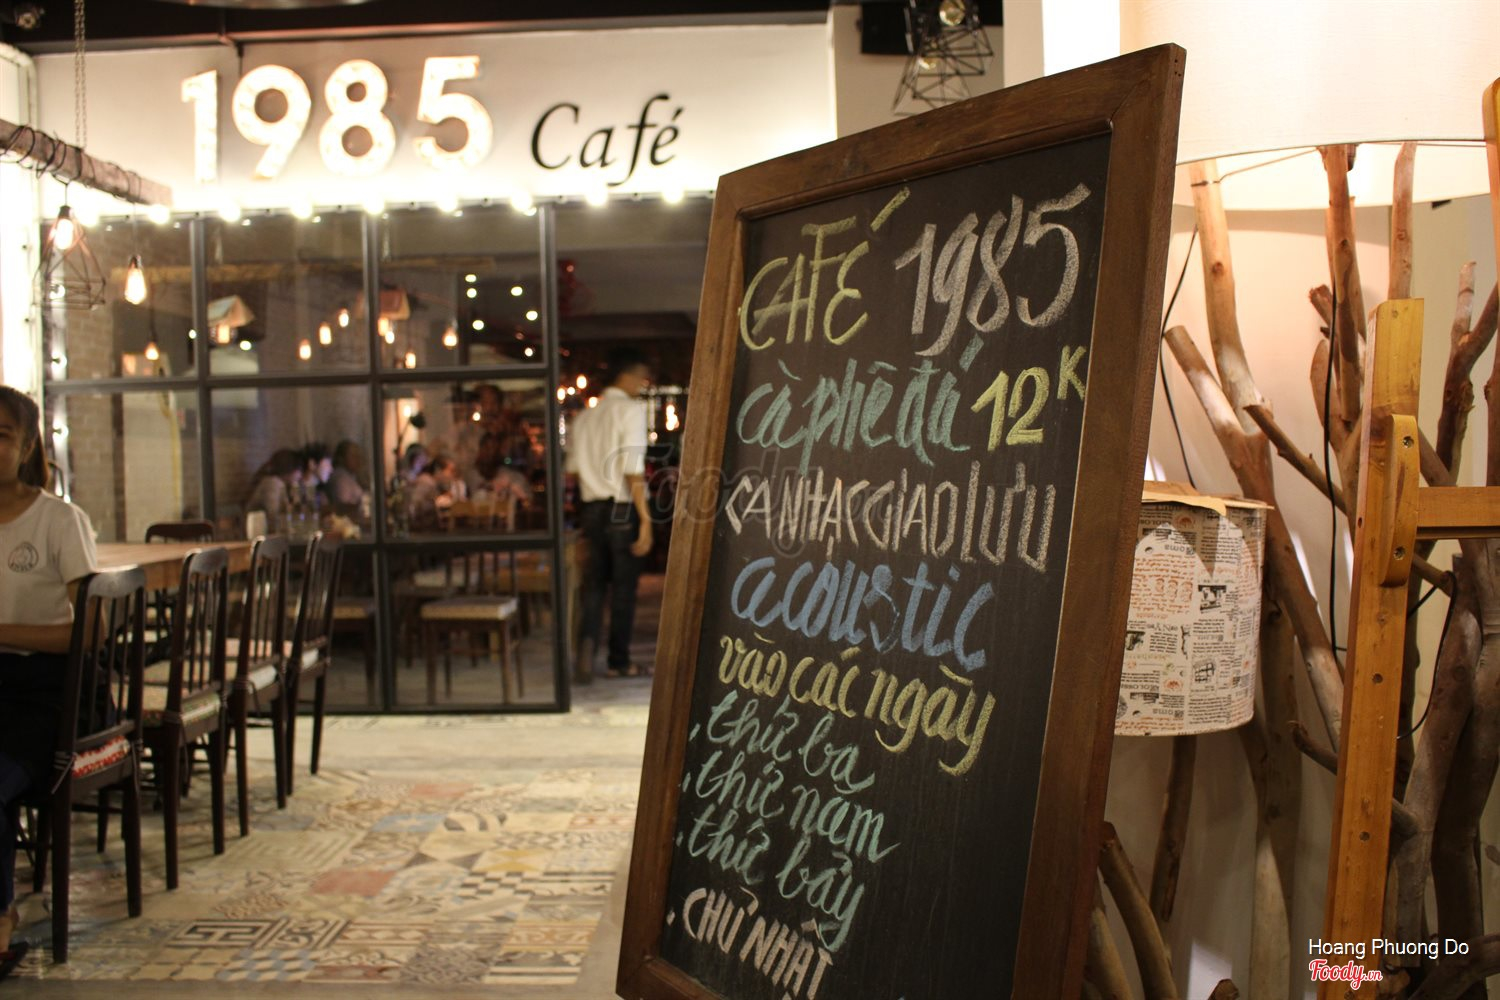 1985 Café
CAFÉ 1985
cà phê đá 12K
CA NHẠC GIAO LƯU
acoustic
vào các ngày
. thứ ba
. thứ năm
. thứ bảy
. CHỦ NHẬT
Foody
Hoang Phuong Do
Foody.vn